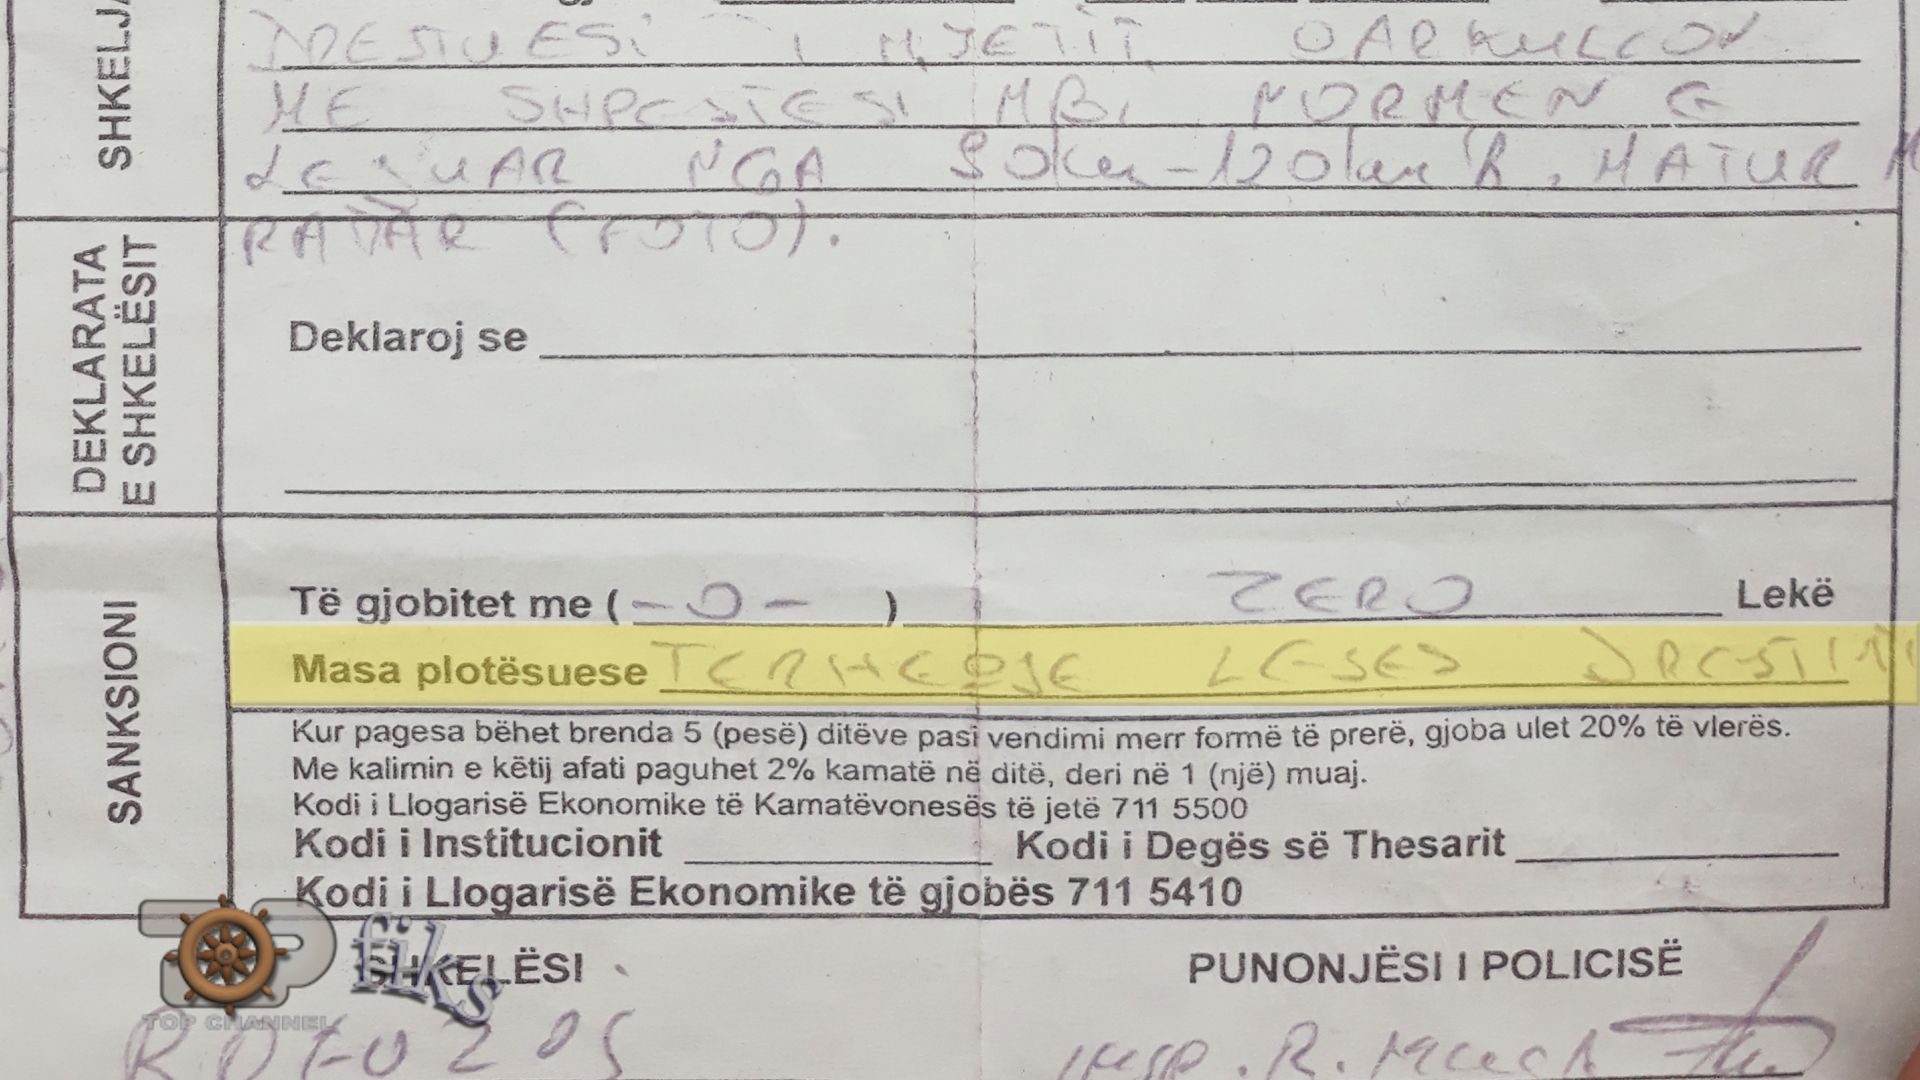 SHKELJA
DREJTUESI I MJETIT QARKULLON
ME SHPEJTESI MBI NORMEN E
LEJUAR NGA 80km-120km/h. MATUR M
RADAR (FOTO).
DEKLARATA
E SHKELËSIT
Deklaroj se
SANKSIONI
Të gjobitet me (-0-) ZERO Lekë
Masa plotësuese TERHEQJE LEJES DREJTIMI
Kur pagesa bëhet brenda 5 (pesë) ditëve pasi vendimi merr formë të prerë, gjoba ulet 20% të vlerës.
Me kalimin e këtij afati paguhet 2% kamatë në ditë, deri në 1 (një) muaj.
Kodi i Llogarisë Ekonomike të Kamatëvonesës të jetë 711 5500
Kodi i Institucionit Kodi i Degës së Thesarit
Kodi i Llogarisë Ekonomike të gjobës 711 5410
SHKELËSI PUNONJËSI I POLICISË
fiks
TOP CHANNEL
insp. R.